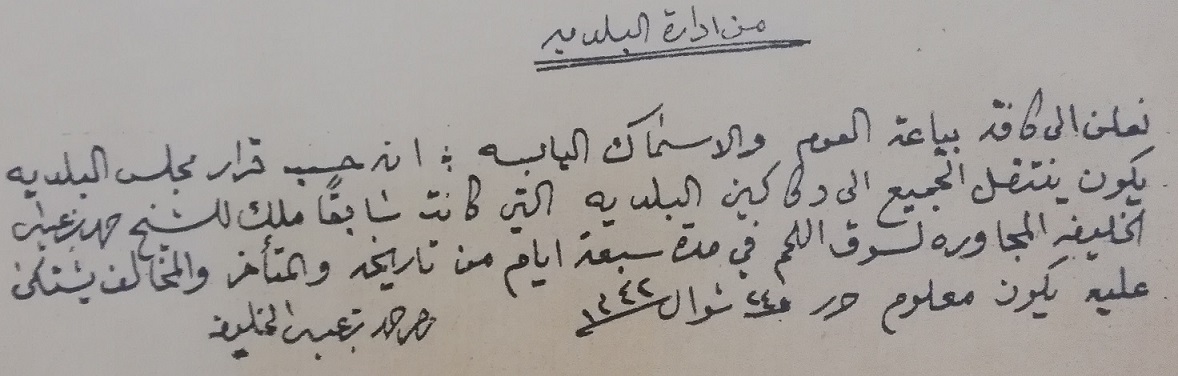 من ادارة البلديه
نعلن الى كافة بياعة العوم والاسماك اليابسه : انه حسب قرار مجلس البلديه
يكون ينتقل الجميع الى دكاكين البلديه التي كانت سابقاً ملك للشيخ حمد بن عيسى
الخليفه المجاوره لسوق اللحم في مدة سبعة ايام من تاريخه والمتأخر والمخالف يشتكى
عليه يكون معلوم حرر ٢٤ شوال ١٣٤٢
حمد بن عيسى الخليفه